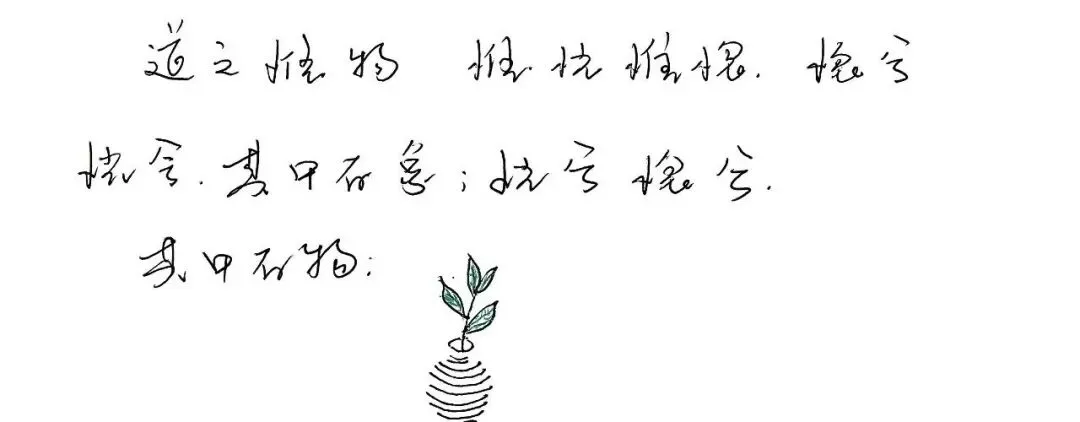 道之惟物 惟恍惟惚.惚兮
恍兮.其中有象;恍兮惚兮.
其中有物;